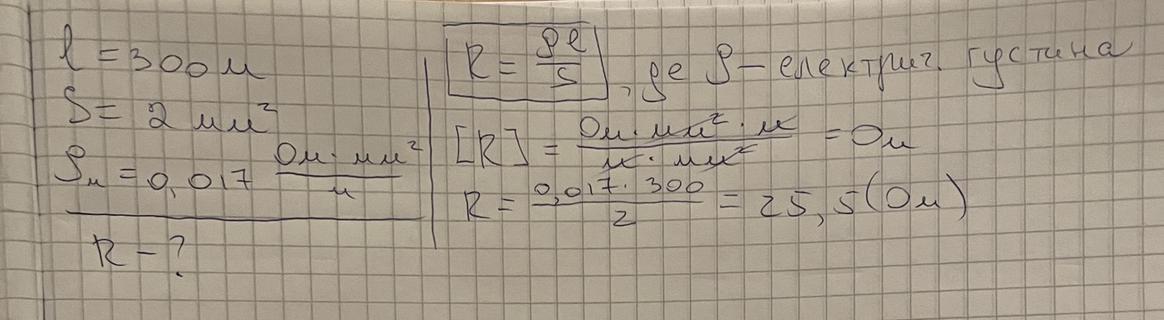 l = 300 м
S = 2 мм²
ρм = 0,017 Ом · мм² / м
R – ?
R = ρl / S, де ρ – електрич. густина
[R] = Ом · мм² · м / м · мм² = Ом
R = 0,017 · 300 / 2 = 25,5 (Ом)